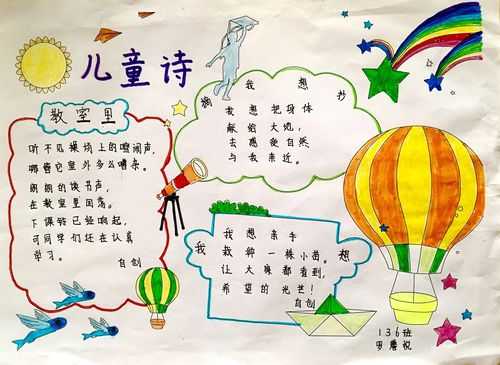 儿童诗
教室里
听不见操场上的喧闹声,
哪管它室外多么嘈杂。
朗朗的读书声,
在教室里回荡。
下课铃已经响起,
可同学们还在认真
学习。
自创
我想
我想把身体
献给大地,
去感受自然
与我亲近。
我想
我想亲手
栽种一棵小苗。
让大家都看到,
希望的光芒!
自创
136班